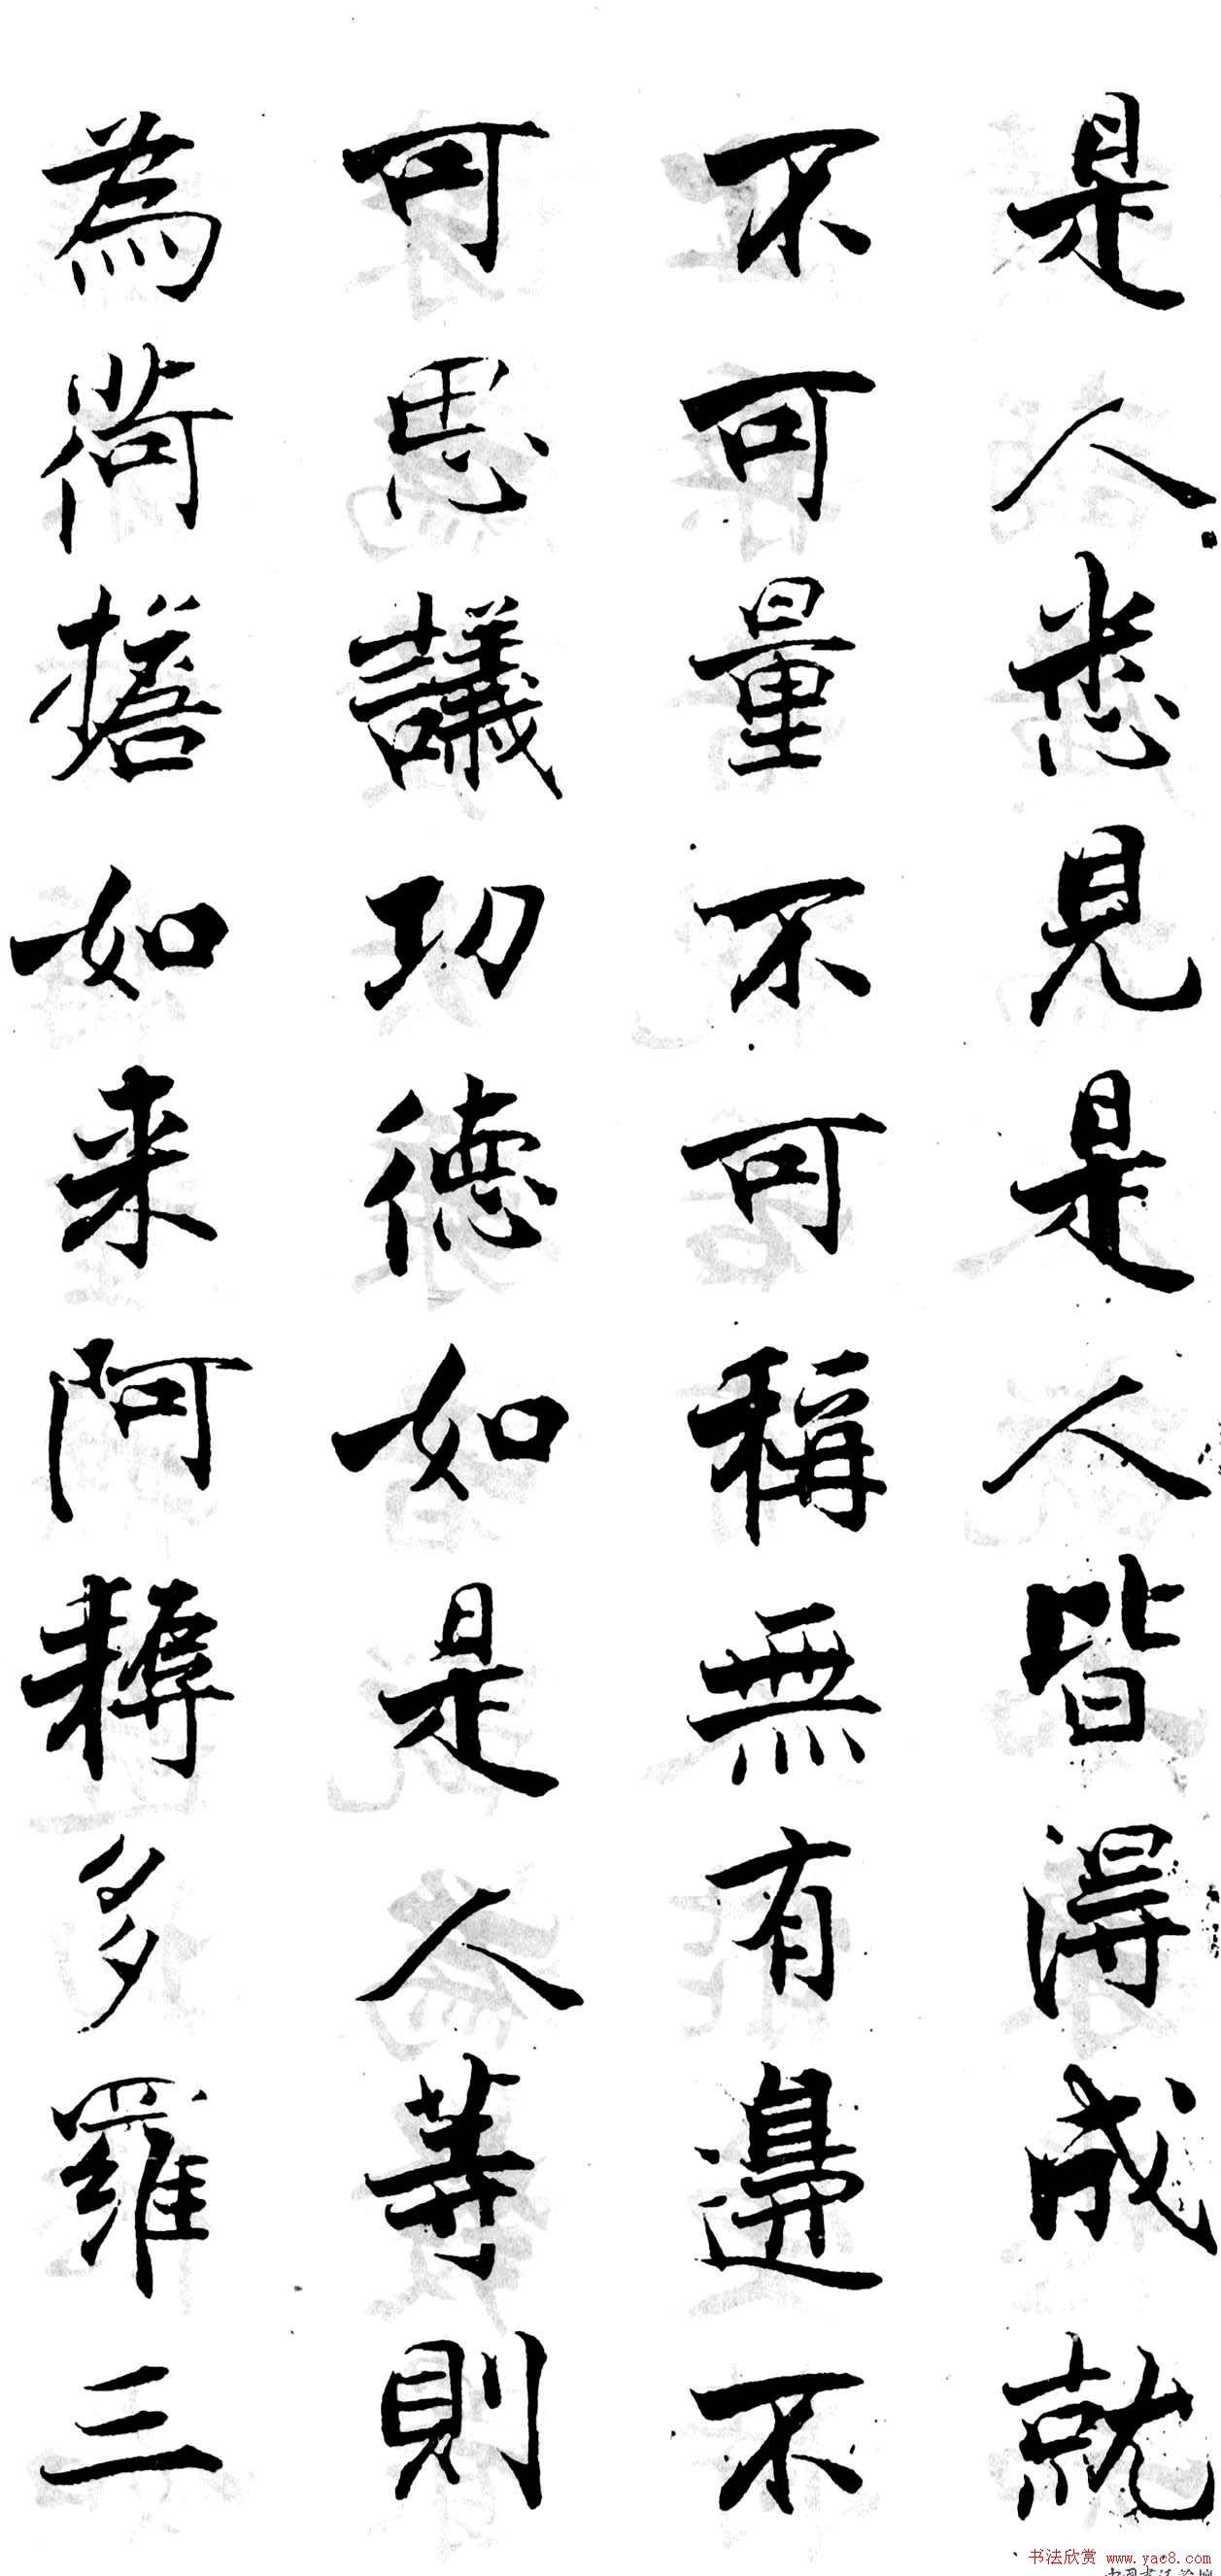 是人悉見是人皆得成就
不可量不可稱無有邊不
可思議功德如是人等則
為荷擔如来阿耨多羅三
书法欣赏 www.yac8.com